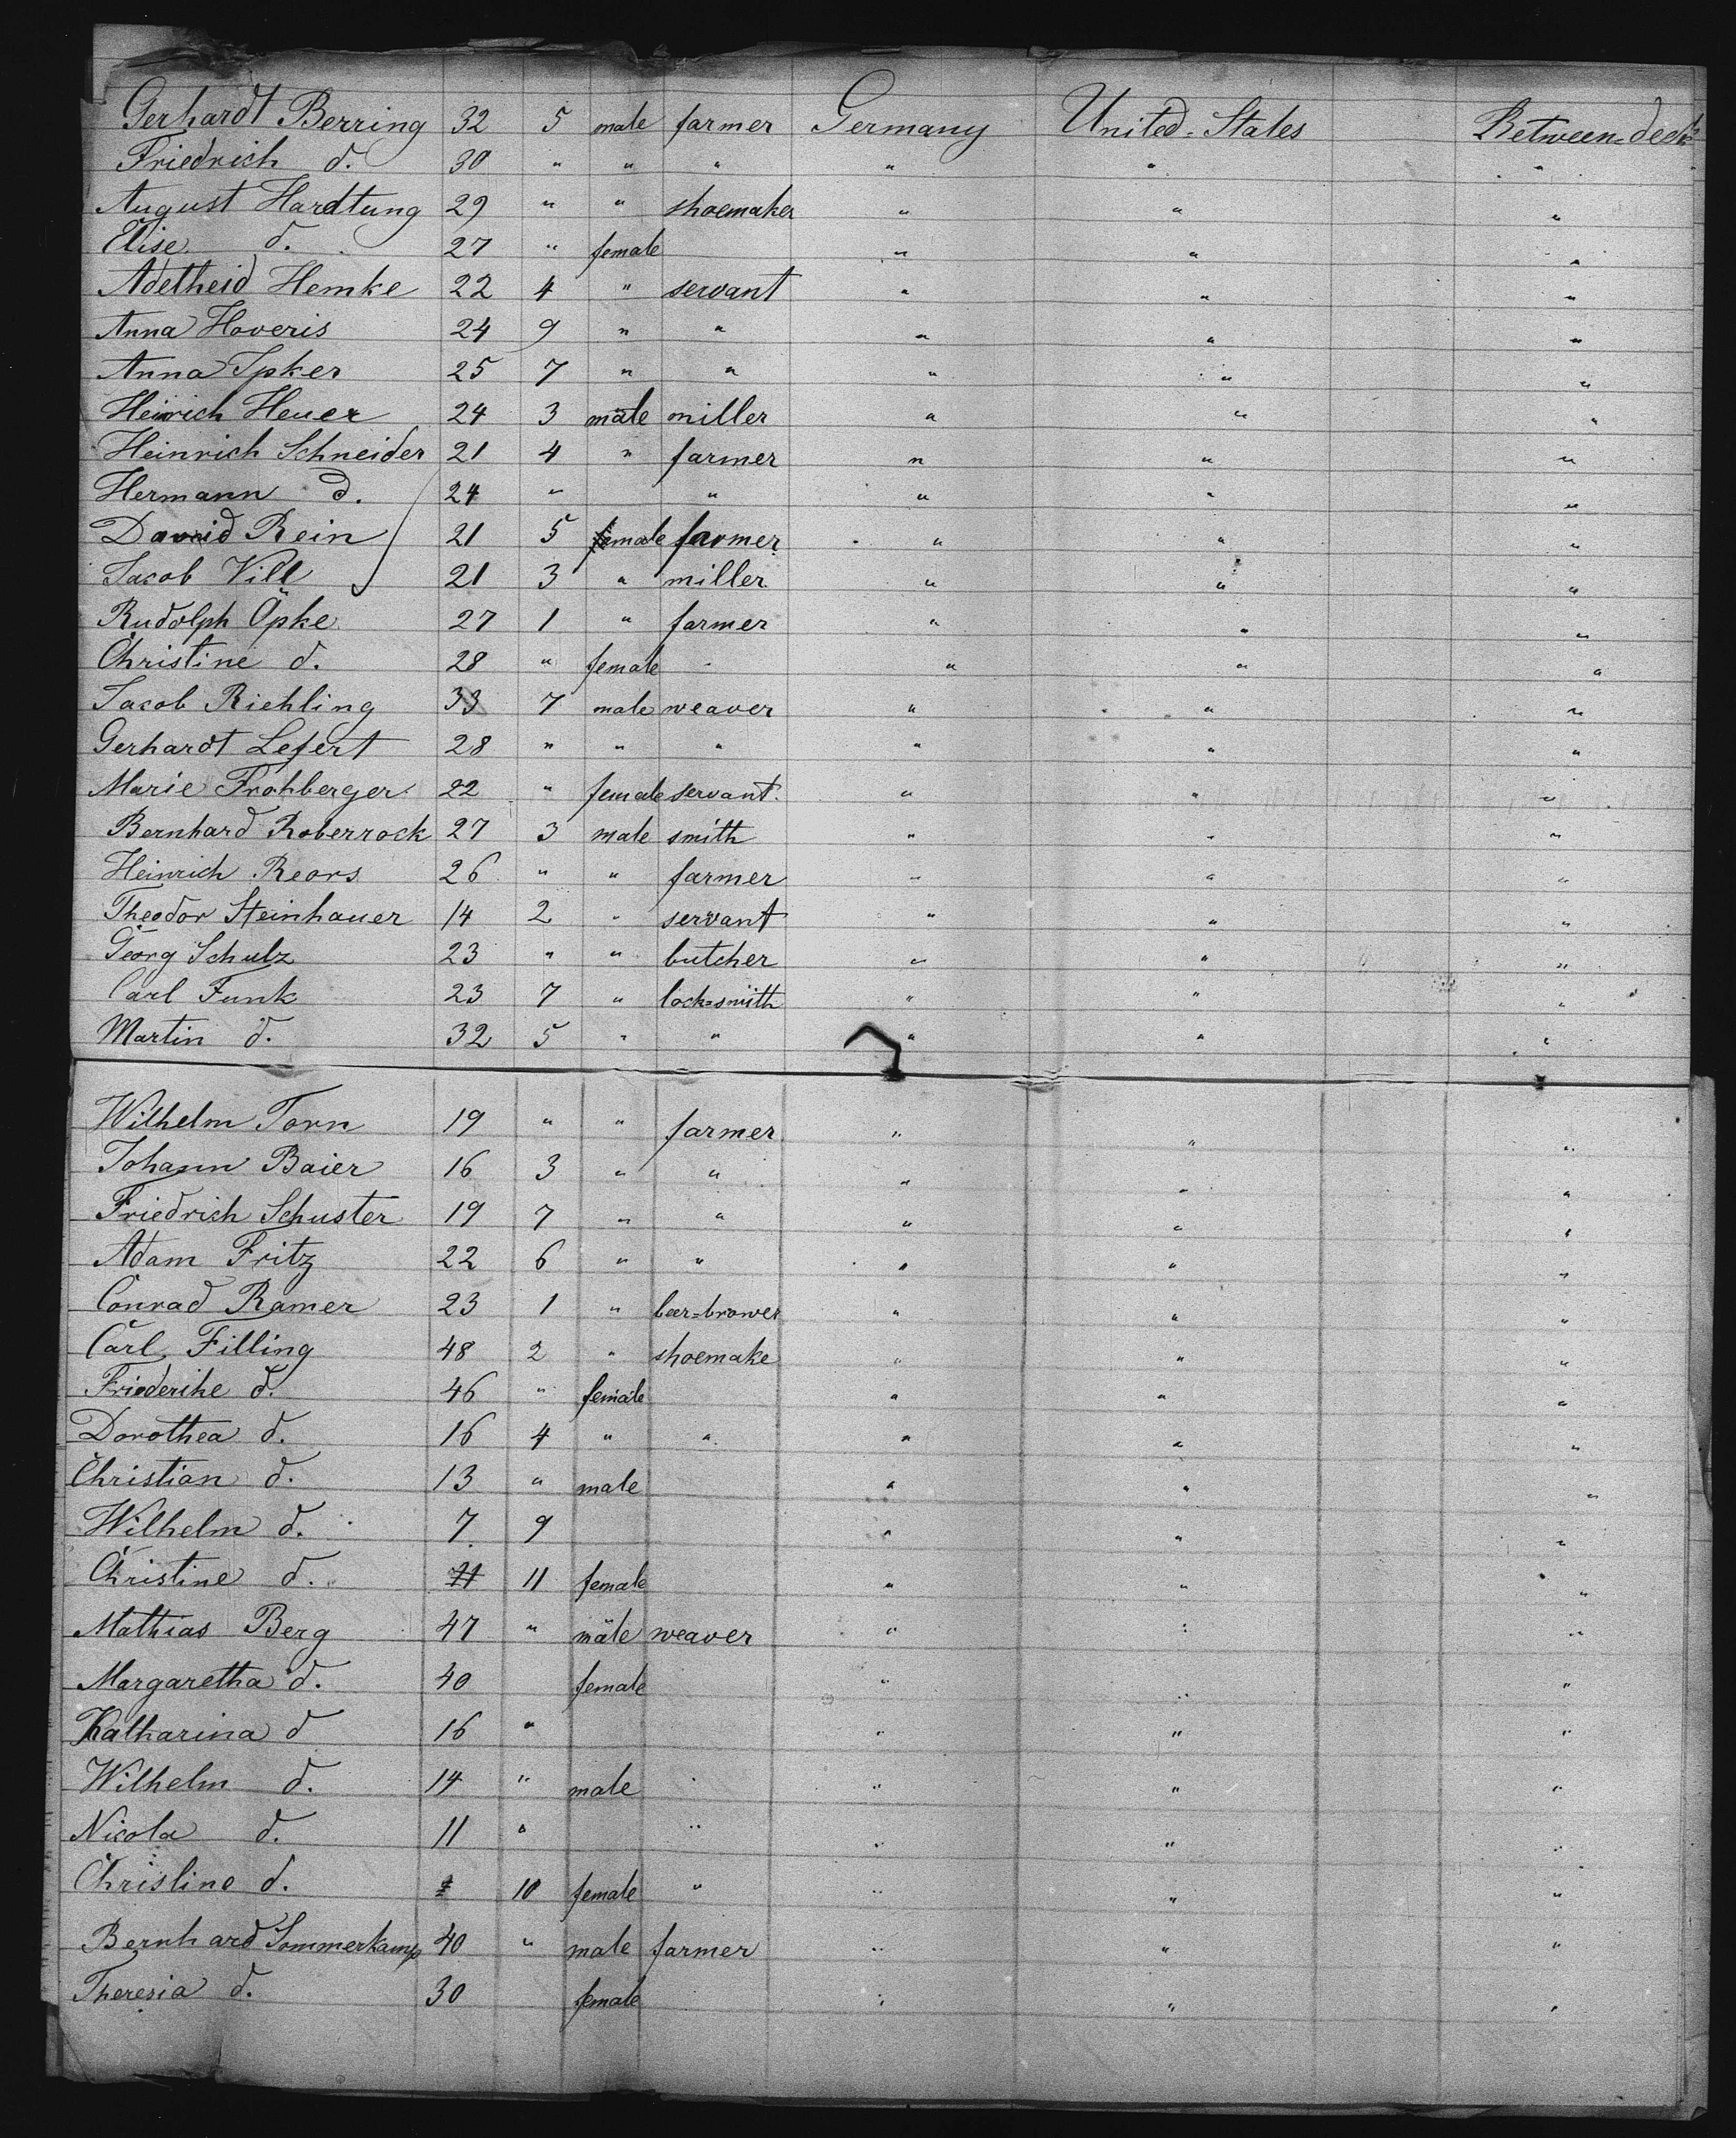 Gerhardt Berring 32 5 male farmer Germany United-States Between-deck
Friedrich d. 30 " " " " " "
August Hardtung 29 " " shoemaker " " "
Elise d. 27 " female " " "
Adelheid Hemke 22 4 " servant " " "
Anna Hoveris 24 9 " " " " "
Anna Ipker 25 7 " " " " "
Heinrich Heuer 24 3 male miller " " "
Heinrich Schneider 21 4 " farmer " " "
Hermann d. 24 " " " " "
David Rein 21 5 male farmer " " "
Jacob Vill 21 3 " miller " " "
Rudolph Öpke 27 1 " farmer " " "
Christine d. 28 " female " " "
Jacob Riehling 33 7 male weaver " " "
Gerhardt Lefert 28 " " " " " "
Marie Frohberger 22 " female servant " " "
Bernhard Roberrock 27 3 male smith " " "
Heinrich Reors 26 " " farmer " " "
Theodor Steinhauer 14 2 " servant " " "
Georg Schulz 23 " " butcher " " "
Carl Funk 23 7 " lock=smith " " "
Martin d. 32 5 " " " " "
Wilhelm Torn 19 " " farmer " " "
Johann Baier 16 3 " " " " "
Friedrich Schuster 19 7 " " " " "
Adam Fritz 22 6 " " " " "
Conrad Ramer 23 1 " beer=brower " " "
Carl Filling 48 2 " shoemake " " "
Friederike d. 46 " female " " "
Dorothea d. 16 4 " " " " "
Christian d. 13 " male " " "
Wilhelm d. 7 9 " " "
Christine d. 11 female " " "
Mathias Berg 47 " male weaver " " "
Margaretha d. 40 female " " "
Katharina d 16 " " " "
Wilhelm d. 14 " male " " "
Nicola d. 11 " " " " "
Christine d. 10 female " " " "
Bernhard Sommerkamp 40 " male farmer " " "
Theresia d. 30 female " " "